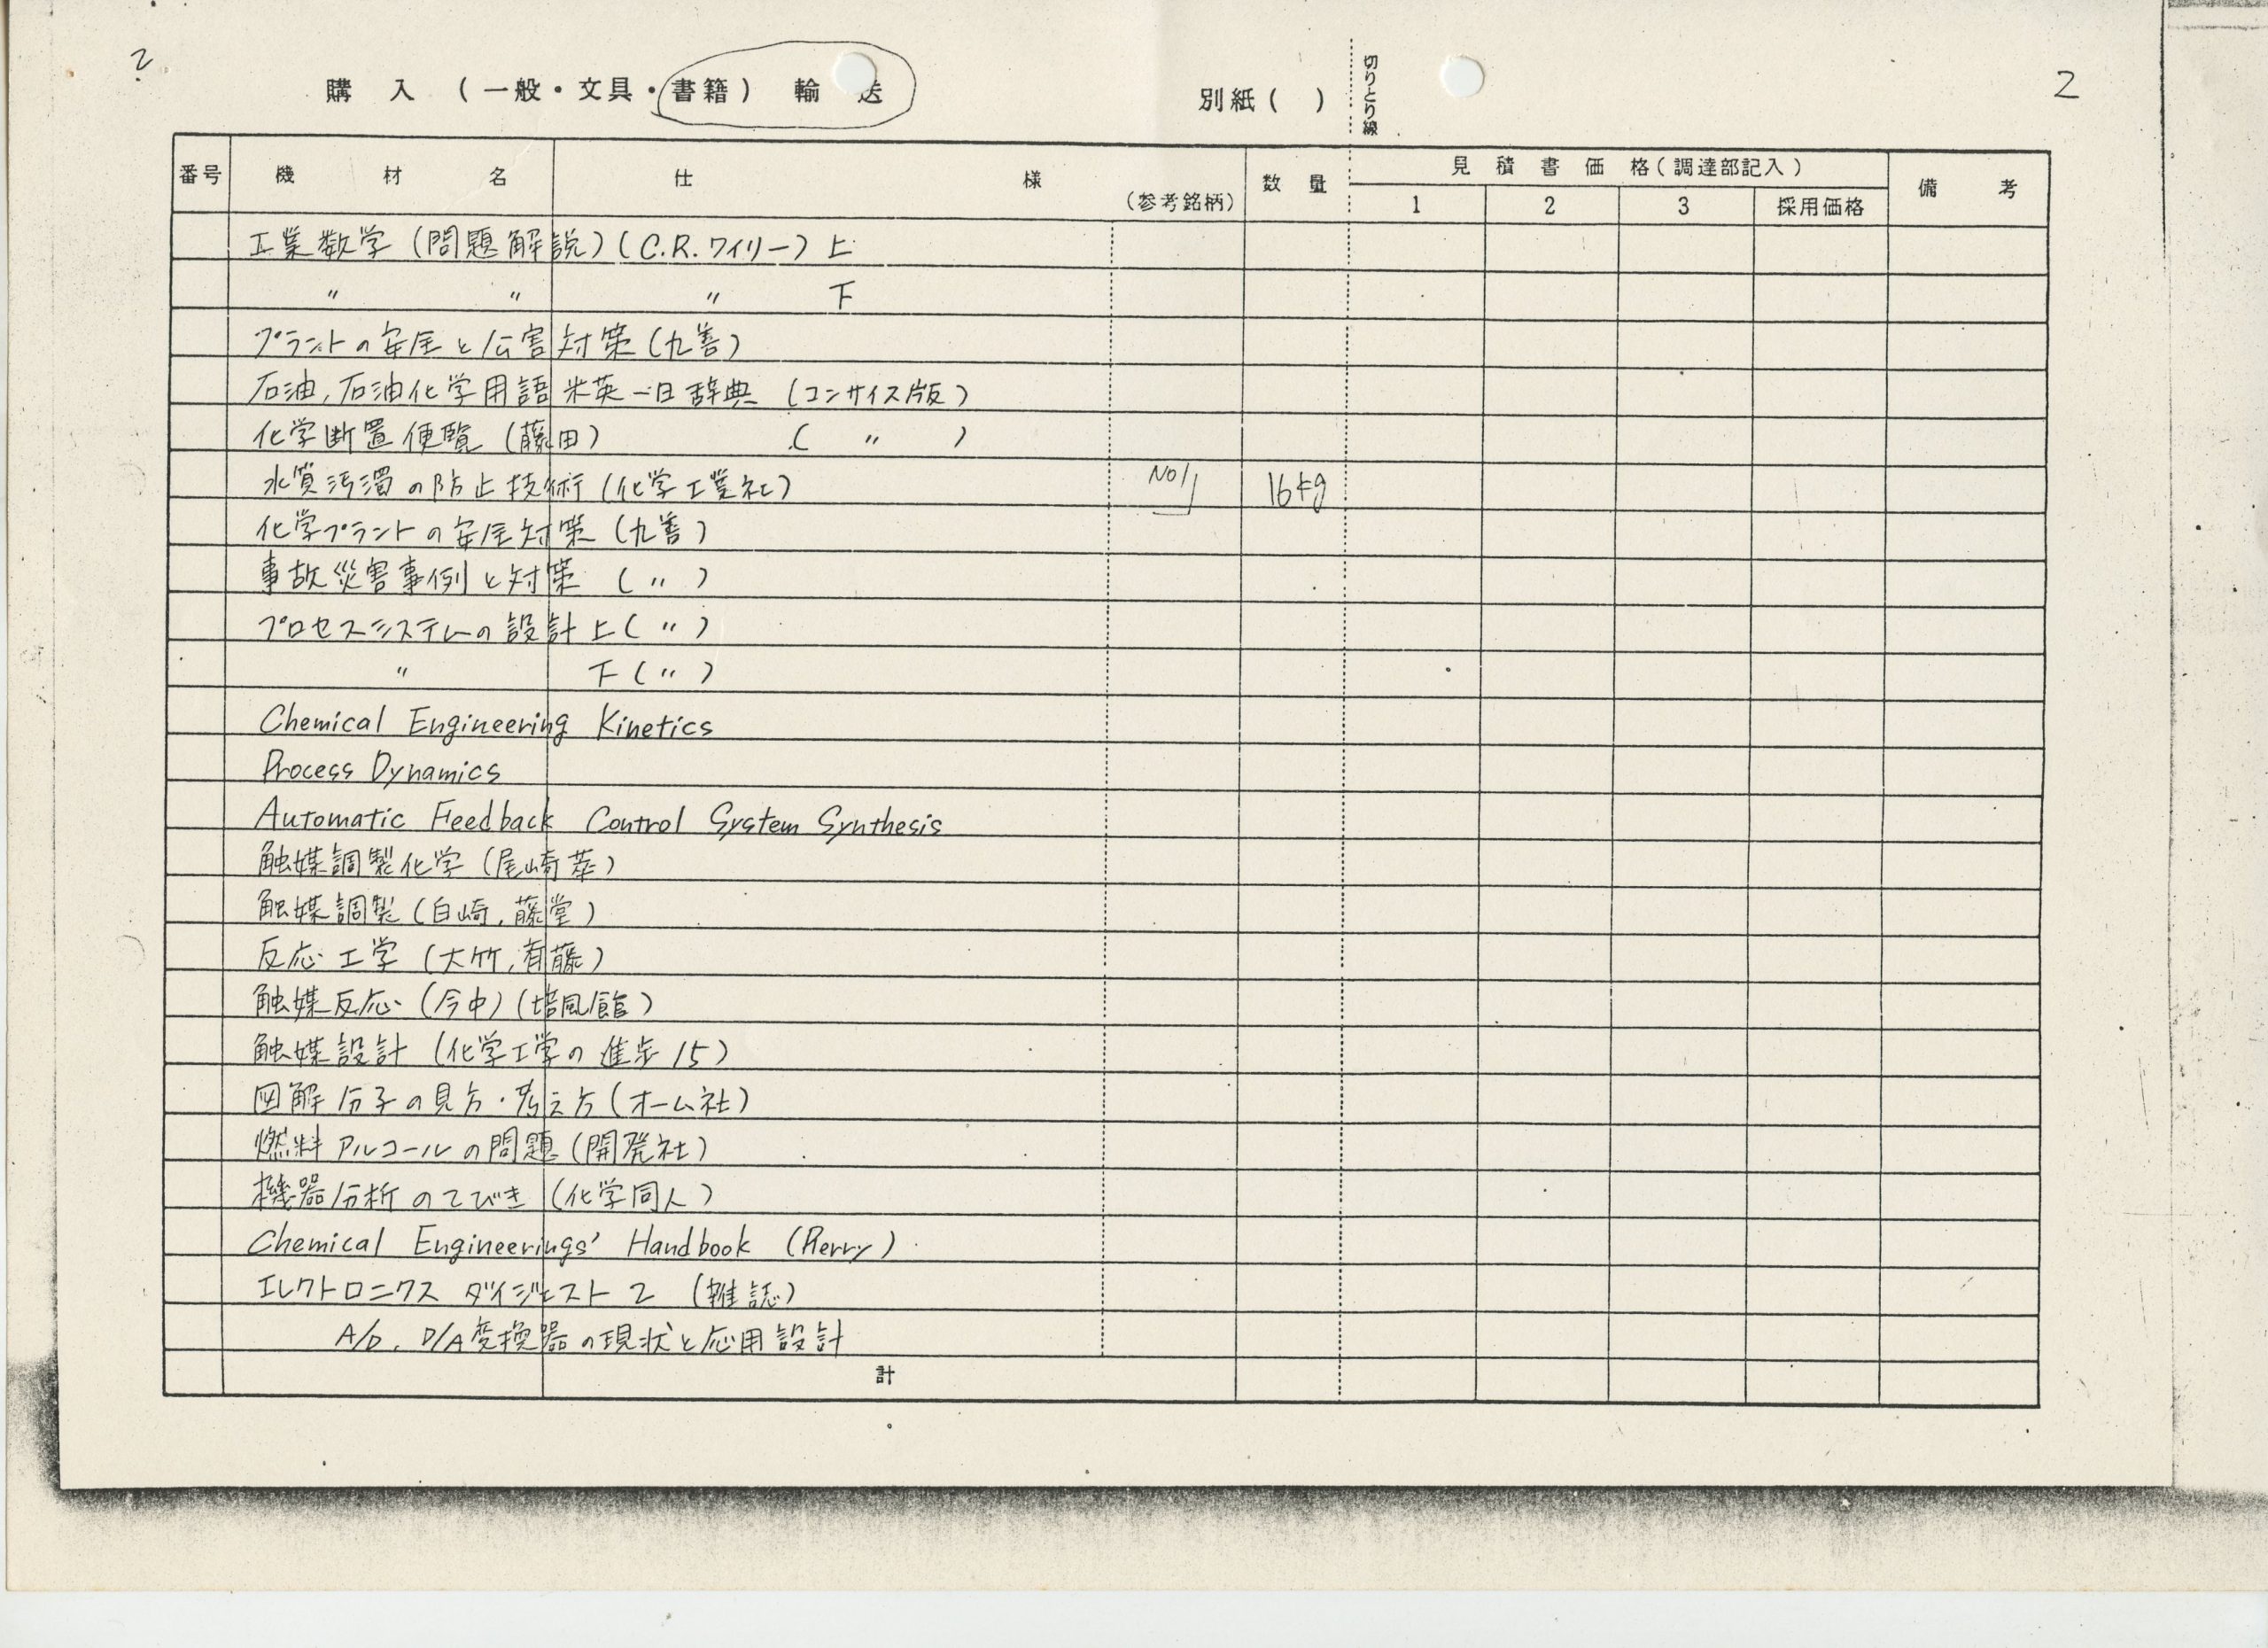 2
購入（一般・文具・書籍）輸送
別紙（　）
切りとり線
2
番号　機材名　仕様　（参考銘柄）　数量　見積書価格（調達部記入）　備考
1　2　3　採用価格
工業数学（問題解説）（C.R.ワイリー）上
〃　〃　〃　下
プラントの安全と公害対策（丸善）
石油，石油化学用語米英－日辞典（コンサイス版）
化学断置便覧（藤田）　（　〃　）
水質汚濁の防止技術（化学工業社）　No1　16kg
化学プラントの安全対策（丸善）
事故災害事例と対策（〃）
プロセスシステムの設計上（〃）
〃　下（〃）
Chemical Engineering Kinetics
Process Dynamics
Automatic Feedback Control System Synthesis
触媒調製化学（尾崎萃）
触媒調製（白崎，藤堂）
反応工学（大竹，斉藤）
触媒反応（今中）（培風館）
触媒設計（化学工学の進歩15）
図解 分子の見方・考え方（オーム社）
燃料アルコールの問題（開発社）
機器分析のてびき（化学同人）
Chemical Engineerings' Handbook (Perry)
エレクトロニクス ダイジェスト 2（雑誌）
A/D，D/A変換器の現状と応用設計
計